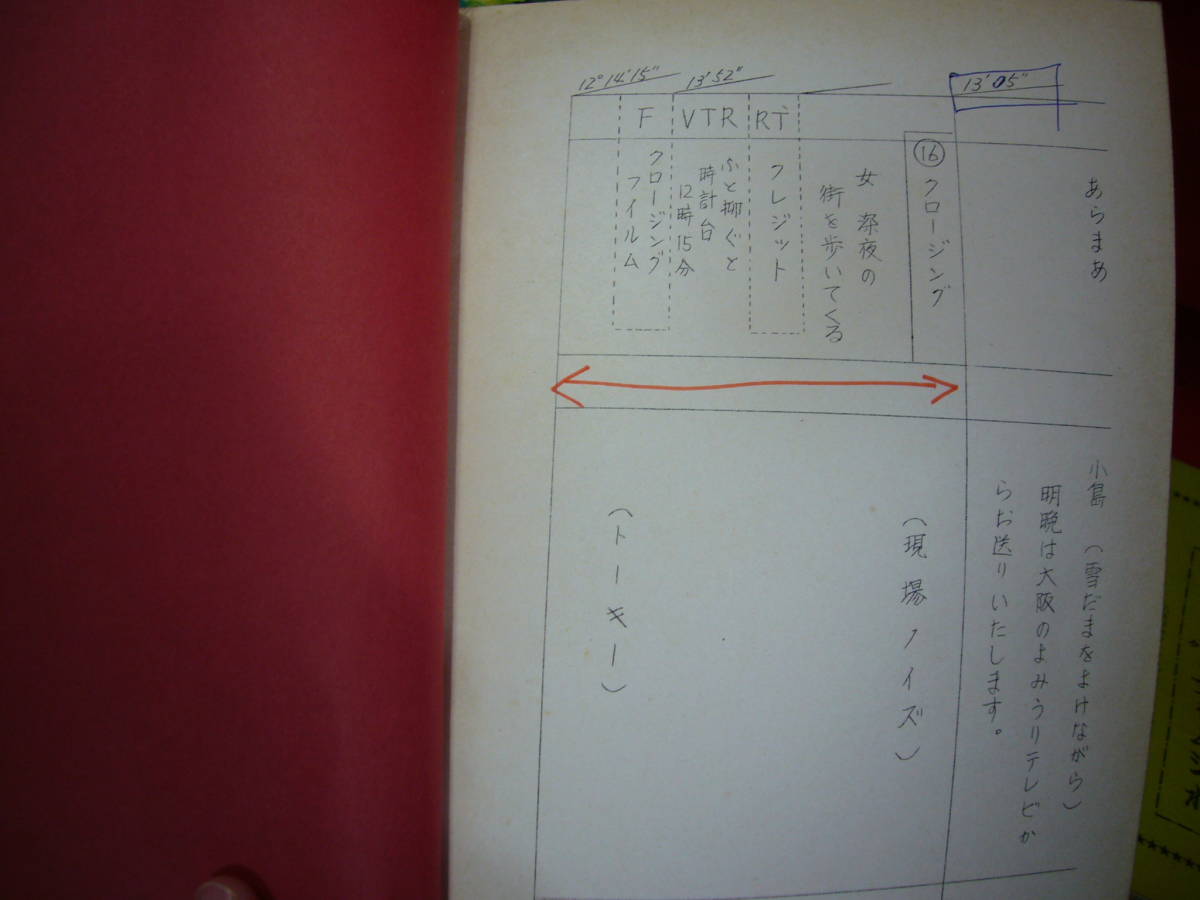 13'05"
あらまあ
小島 (雪だまをよけながら)
明晩は大阪のよみうりテレビか
らお送りいたします。
⑯クロージング
女 深夜の
街を歩いてくる
(現場ノイズ)
RT
クレジット
13'52"
VTR
ふと仰ぐと
時計台
12時15分
F
クロージング
フイルム
(トーキー)
12°14'15"